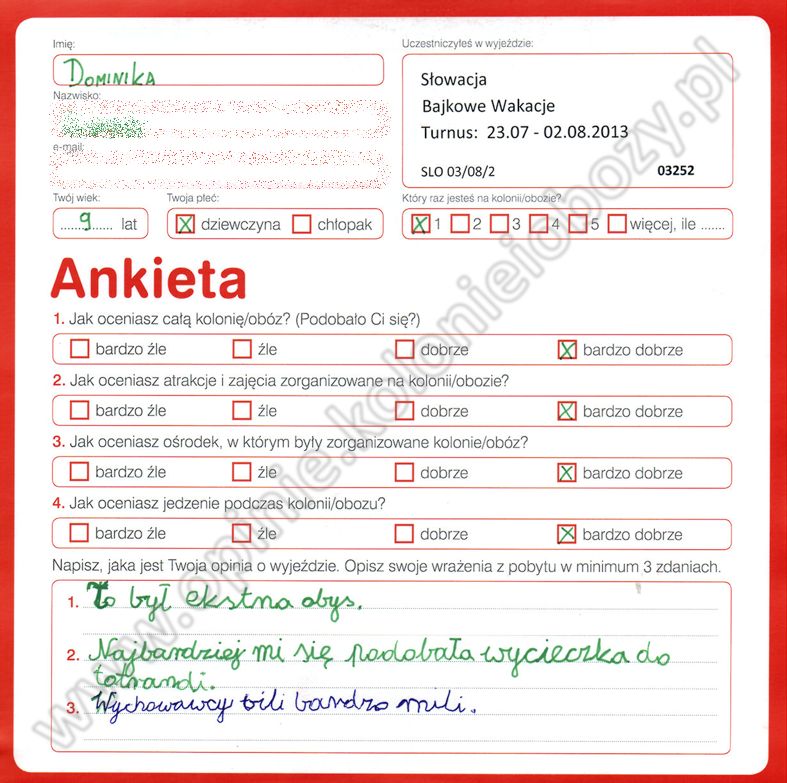 Imię:
Uczestniczyłeś w wyjeździe:
DOMINIKA
Słowacja
Bajkowe Wakacje
Turnus: 23.07 - 02.08.2013
SLO 03/08/2
03252
Nazwisko:
e-mail:
Twój wiek:
Twoja płeć:
Który raz jesteś na kolonii/obozie?
......9...... lat
X dziewczyna
chłopak
X 1 2 3 4 5 więcej, ile .......
Ankieta
1. Jak oceniasz całą kolonię/obóz? (Podobało Ci się?)
bardzo źle źle dobrze X bardzo dobrze
2. Jak oceniasz atrakcje i zajęcia zorganizowane na kolonii/obozie?
bardzo źle źle dobrze X bardzo dobrze
3. Jak oceniasz ośrodek, w którym były zorganizowane kolonie/obóz?
bardzo źle źle dobrze X bardzo dobrze
4. Jak oceniasz jedzenie podczas kolonii/obozu?
bardzo źle źle dobrze X bardzo dobrze
Napisz, jaka jest Twoja opinia o wyjeździe. Opisz swoje wrażenia z pobytu w minimum 3 zdaniach.
1. To był ekstna obys.
2. Najbardziej mi się podobała wycieczka do
tatrandi.
3. Wychowawcy bili bardzo mili.
www.opinie.kolonieiobozy.pl